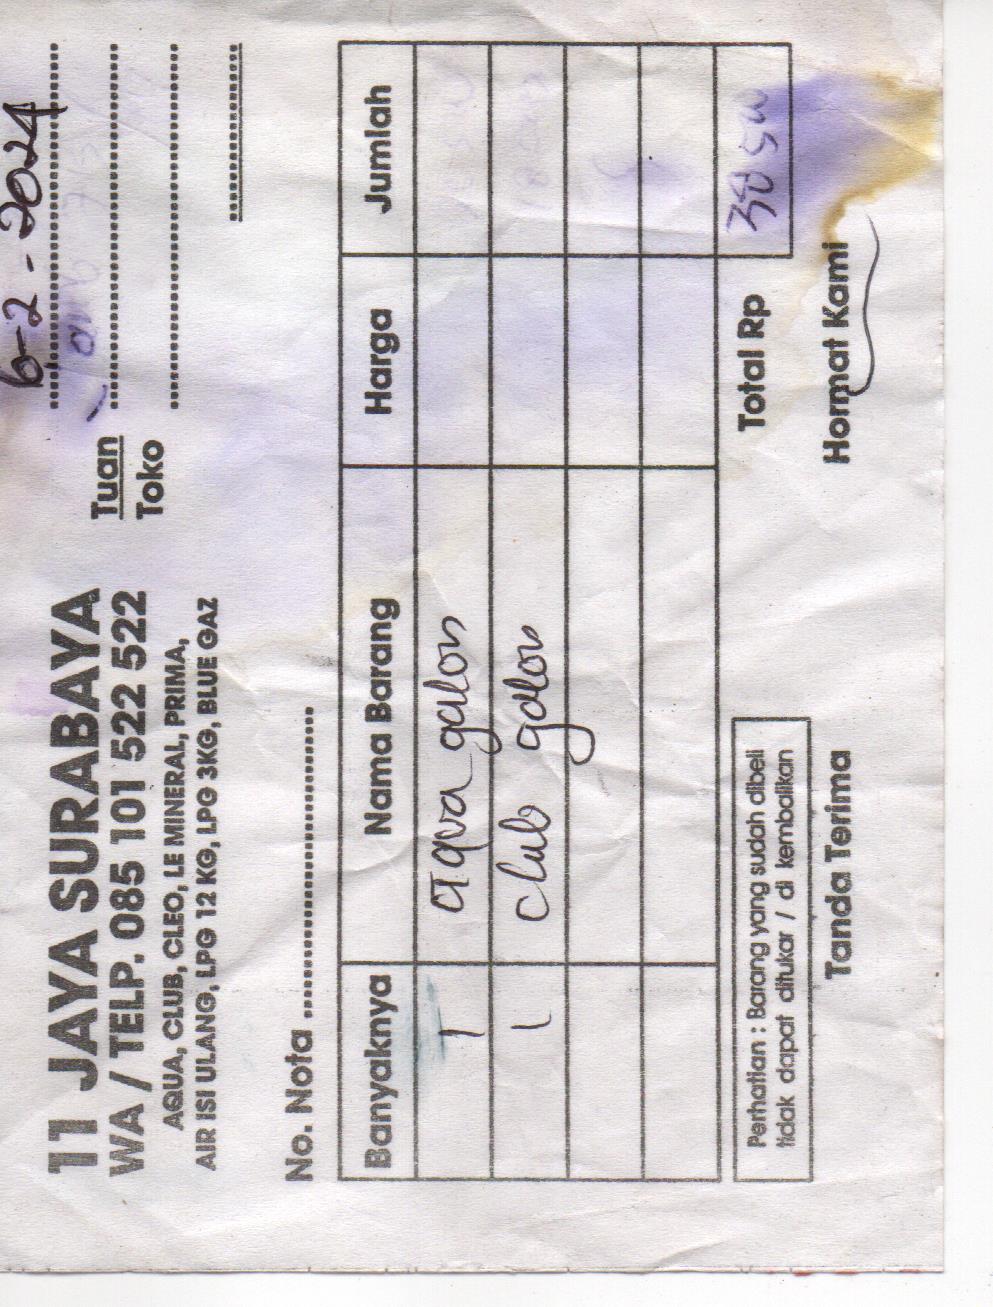 6-2-2024
11 JAYA SURABAYA
WA / TELP. 085 101 522 522
AQUA, CLUB, CLEO, LE MINERAL, PRIMA,
AIR ISI ULANG, LPG 12 KG, LPG 3KG, BLUE GAZ
Tuan
Toko
No. Nota
Banyaknya Nama Barang Harga Jumlah
1 aqua galon
1 club galon
Total Rp
Perhatian : Barang yang sudah dibeli
tidak dapat ditukar / di kembalikan
Tanda Terima Hormat Kami